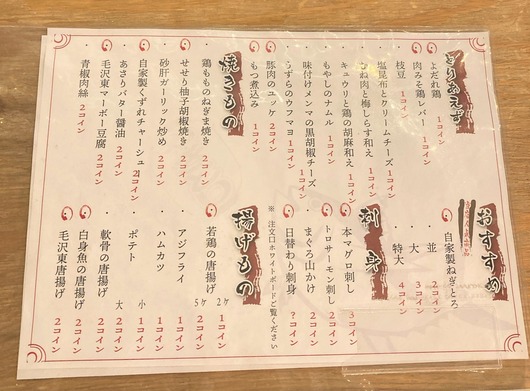 とりあえず
よだれ鶏 1コイン
肉みそ鶏レバー 1コイン
枝豆 1コイン
塩昆布とクリームチーズ 1コイン
ささね肉と梅しらす和え 1コイン
キュウリと鶏の胡麻和え 1コイン
もやしのナムル 1コイン
味付けメンマの黒胡椒チーズ 1コイン
うずらのウフマヨ 1コイン
豚肉のユッケ 2コイン
もつ煮込み 1コイン
焼きもの
鶏もものねぎま焼き 2コイン
せせり柚子胡椒焼き 2コイン
砂肝ガーリック炒め 2コイン
自家製くずれチャーシュー 2コイン
あさりバター醤油 2コイン
毛沢東マーボー豆腐 2コイン
青椒肉絲 2コイン
おすすめ
自家製ねぎとろ
並 2コイン
大 3コイン
特大 4コイン
刺身
本マグロ刺し 3コイン
トロサーモン刺し 2コイン
まぐろ山かけ 2コイン
日替わり刺身 ?コイン
※注文口ホワイトボードご覧ください
揚げもの
若鶏の唐揚げ 2ケ 1コイン
5ケ 2コイン
アジフライ 1コイン
ハムカツ 1コイン
ポテト 小 1コイン
大 2コイン
軟骨の唐揚げ 2コイン
白身魚の唐揚げ 2コイン
毛沢東唐揚げ 2コイン